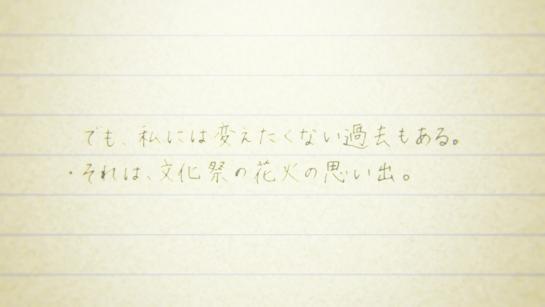 でも、私には変えたくない過去もある。
・それは、文化祭の花火の思い出。